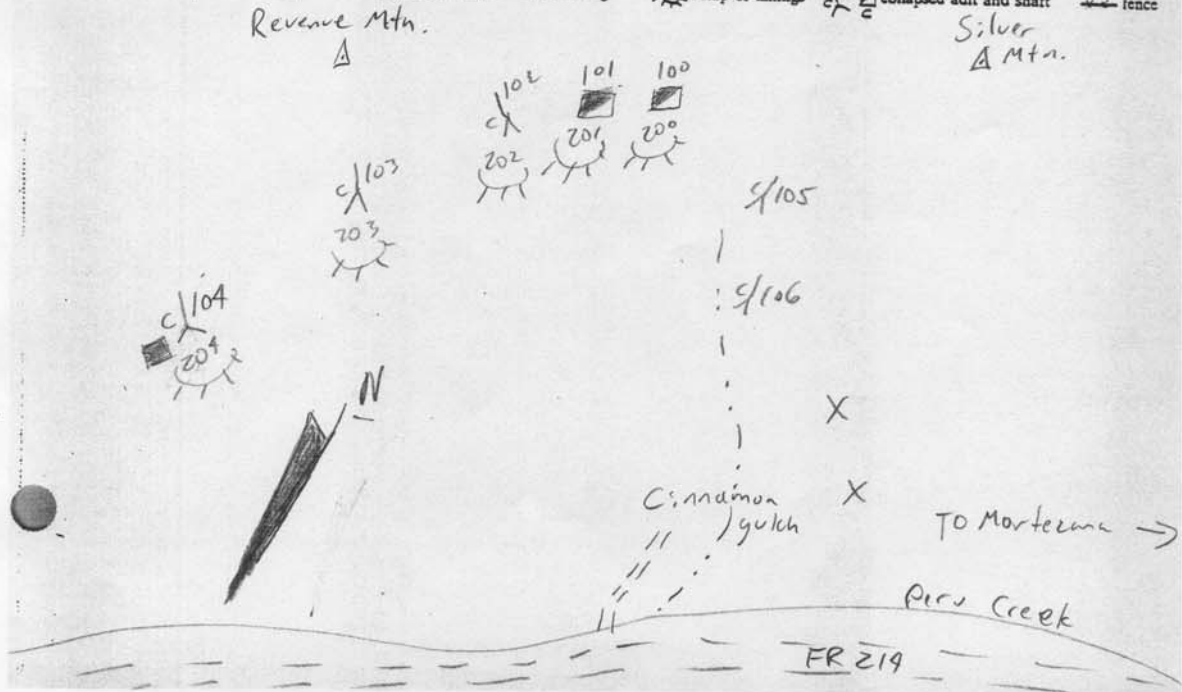 collapsed adit and shaft fence
Revenue Mtn.
Silver
Mtn.
102
101
100
C
202
201
200
103
C
203
C/105
C/106
104
C
204
N
X
X
Cinnamon
gulch
TO Montezuma →
Peru Creek
FR 214